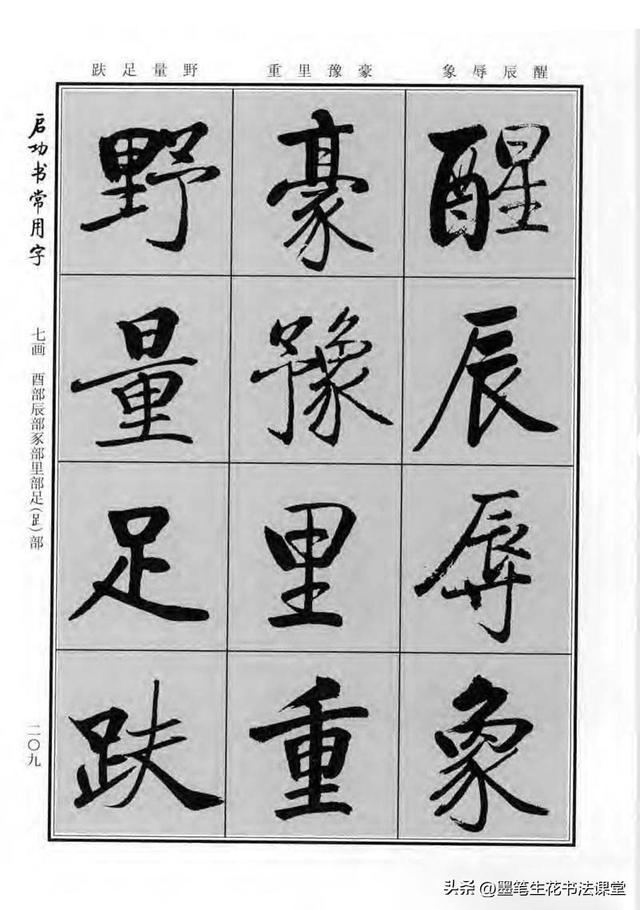 象辱辰醒
重里豫豪
趺足量野
醒辰辱象
豪豫里重
野量足趺
启功书常用字
七画 酉部辰部豕部里部足(𧾷)部
二〇九
头条 @墨笔生花书法课堂